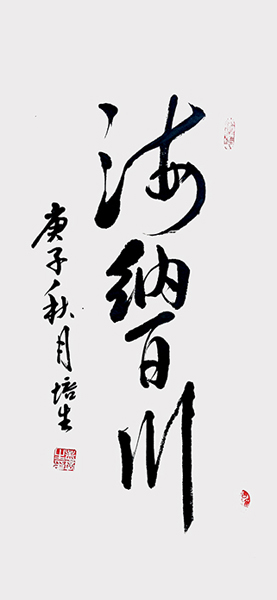 海纳百川
庚子秋月培生